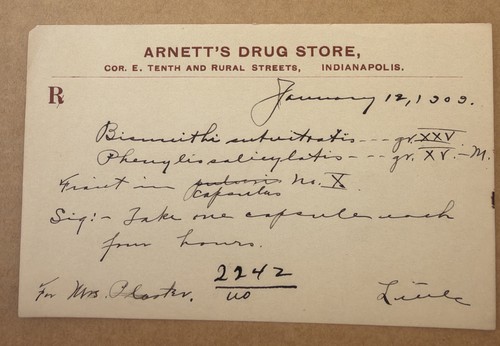 ARNETT'S DRUG STORE,
COR. E. TENTH AND RURAL STREETS, INDIANAPOLIS.
R
January 12, 1909.
Bismuthi subnitratis --- gr. XXV
Phenylis salicylatis --- gr. XV. - M.
Fiant in pulveris No. X
capsulas
Sig:- Take one capsule each
four hours.
2242
For Mrs. Plaster. 110
Little